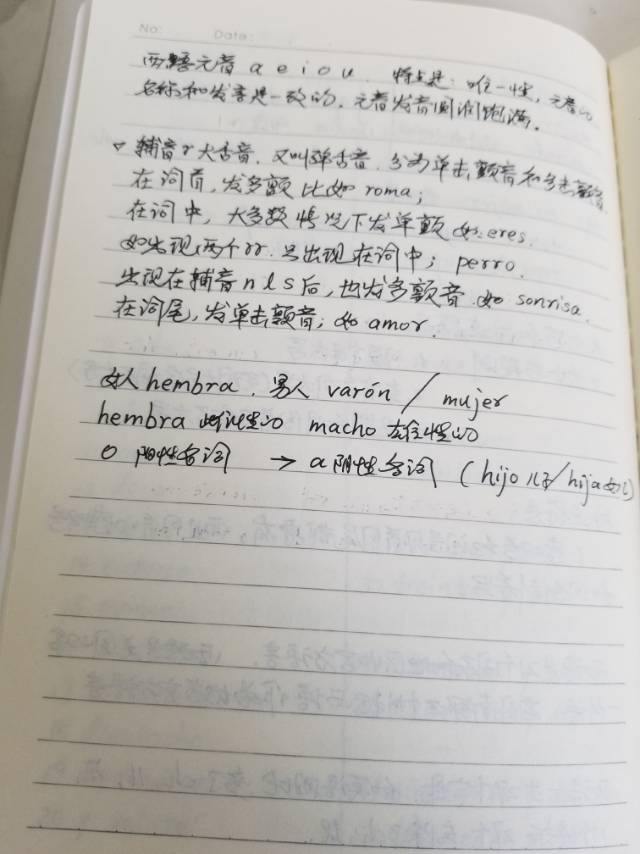 No:      Date:
西语元音 a e i o u. 特点是: 唯一性, 元音的
名称和发音是一致的, 元音发音圆润饱满。
辅音r大舌音, 又叫弹舌音, 分为单击颤音和多击颤音.
在词首, 发多颤 比如 roma;
在词中, 大多数情况下发单颤 如: eres.
如出现两个rr. 只出现在词中; perro.
出现在辅音 n l s 后, 也发多颤音. 如 sonrisa.
在词尾, 发单击颤音; 如 amor.
女人 hembra. 男人 varón / mujer
hembra 雌性的 macho 雄性的
o 阳性名词 → a 阴性名词 ( hijo 儿子/hija 女儿)